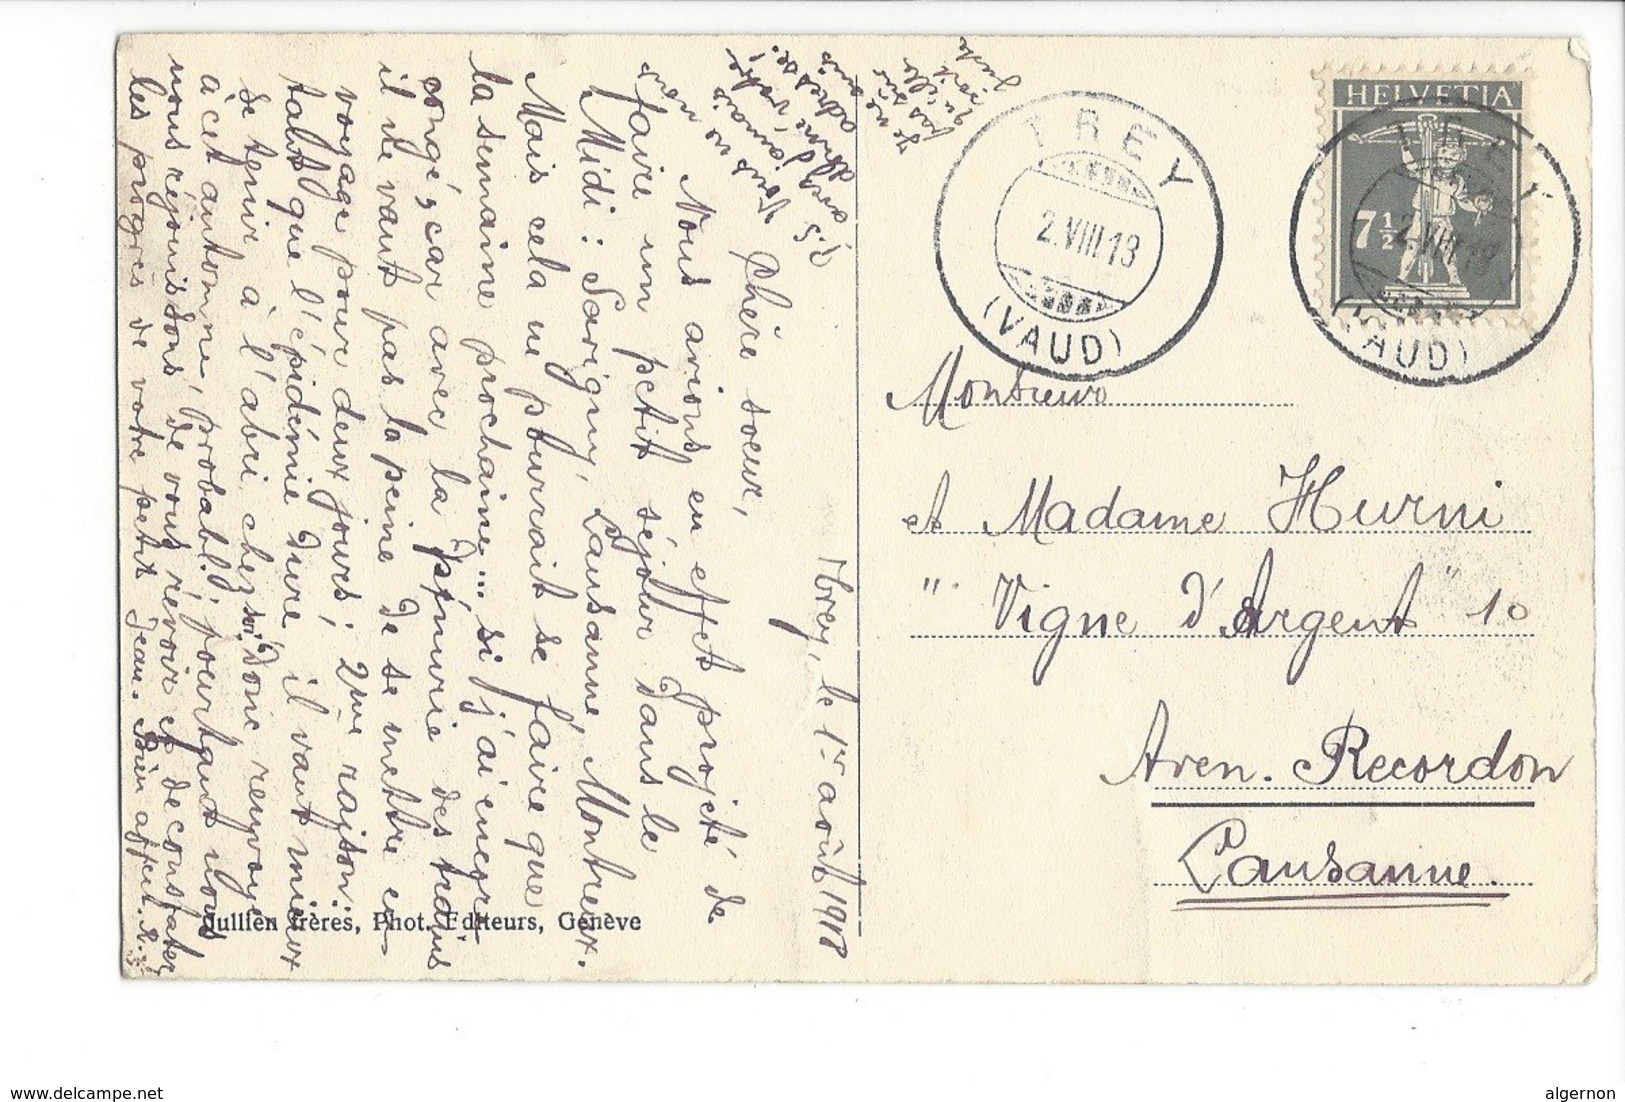 Trey, le 1er août 1918
Chère soeur,
Nous avions en effet projeté de
faire un petit séjour dans le
Midi: Savigny, Lausanne, Montreux.
Mais cela ne pourrait se faire que
la semaine prochaine... si j'ai encore
congé, car avec la pénurie des trains
il ne vaut pas la peine de se mettre en
voyage pour deux jours; 2me raison:
tant que l'épidémie dure, il vaut mieux
se tenir à l'abri chez soi. Donc renvoyé
à cet automne, probabl.; pourtant nous
nous réjouissons de vous revoir et de constater
les progrès de votre petit Jean. Bien affect.
P.S. Vous ne nous
avez jamais
donné votre
adresse!
Je ne suis
pas sûr
qu'elle
soit
juste
TREY
2.VIII.18
(VAUD)
HELVETIA
7½
TREY
2.VIII.18
(VAUD)
Monsieur
et Madame Hurni
"Vigne d'Argent" 10
Aven. Recordon
Lausanne.
Jullien frères, Phot. Editeurs, Genève
delcampe.net
algernon